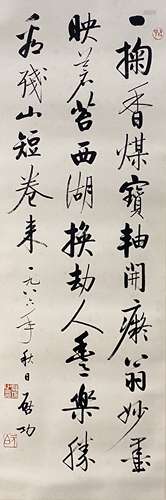 一掬香煤寶軸開癡翁妙墨
映莓苔西湖換劫人豪樂勝
看殘山短卷來一九八六年秋日啟功